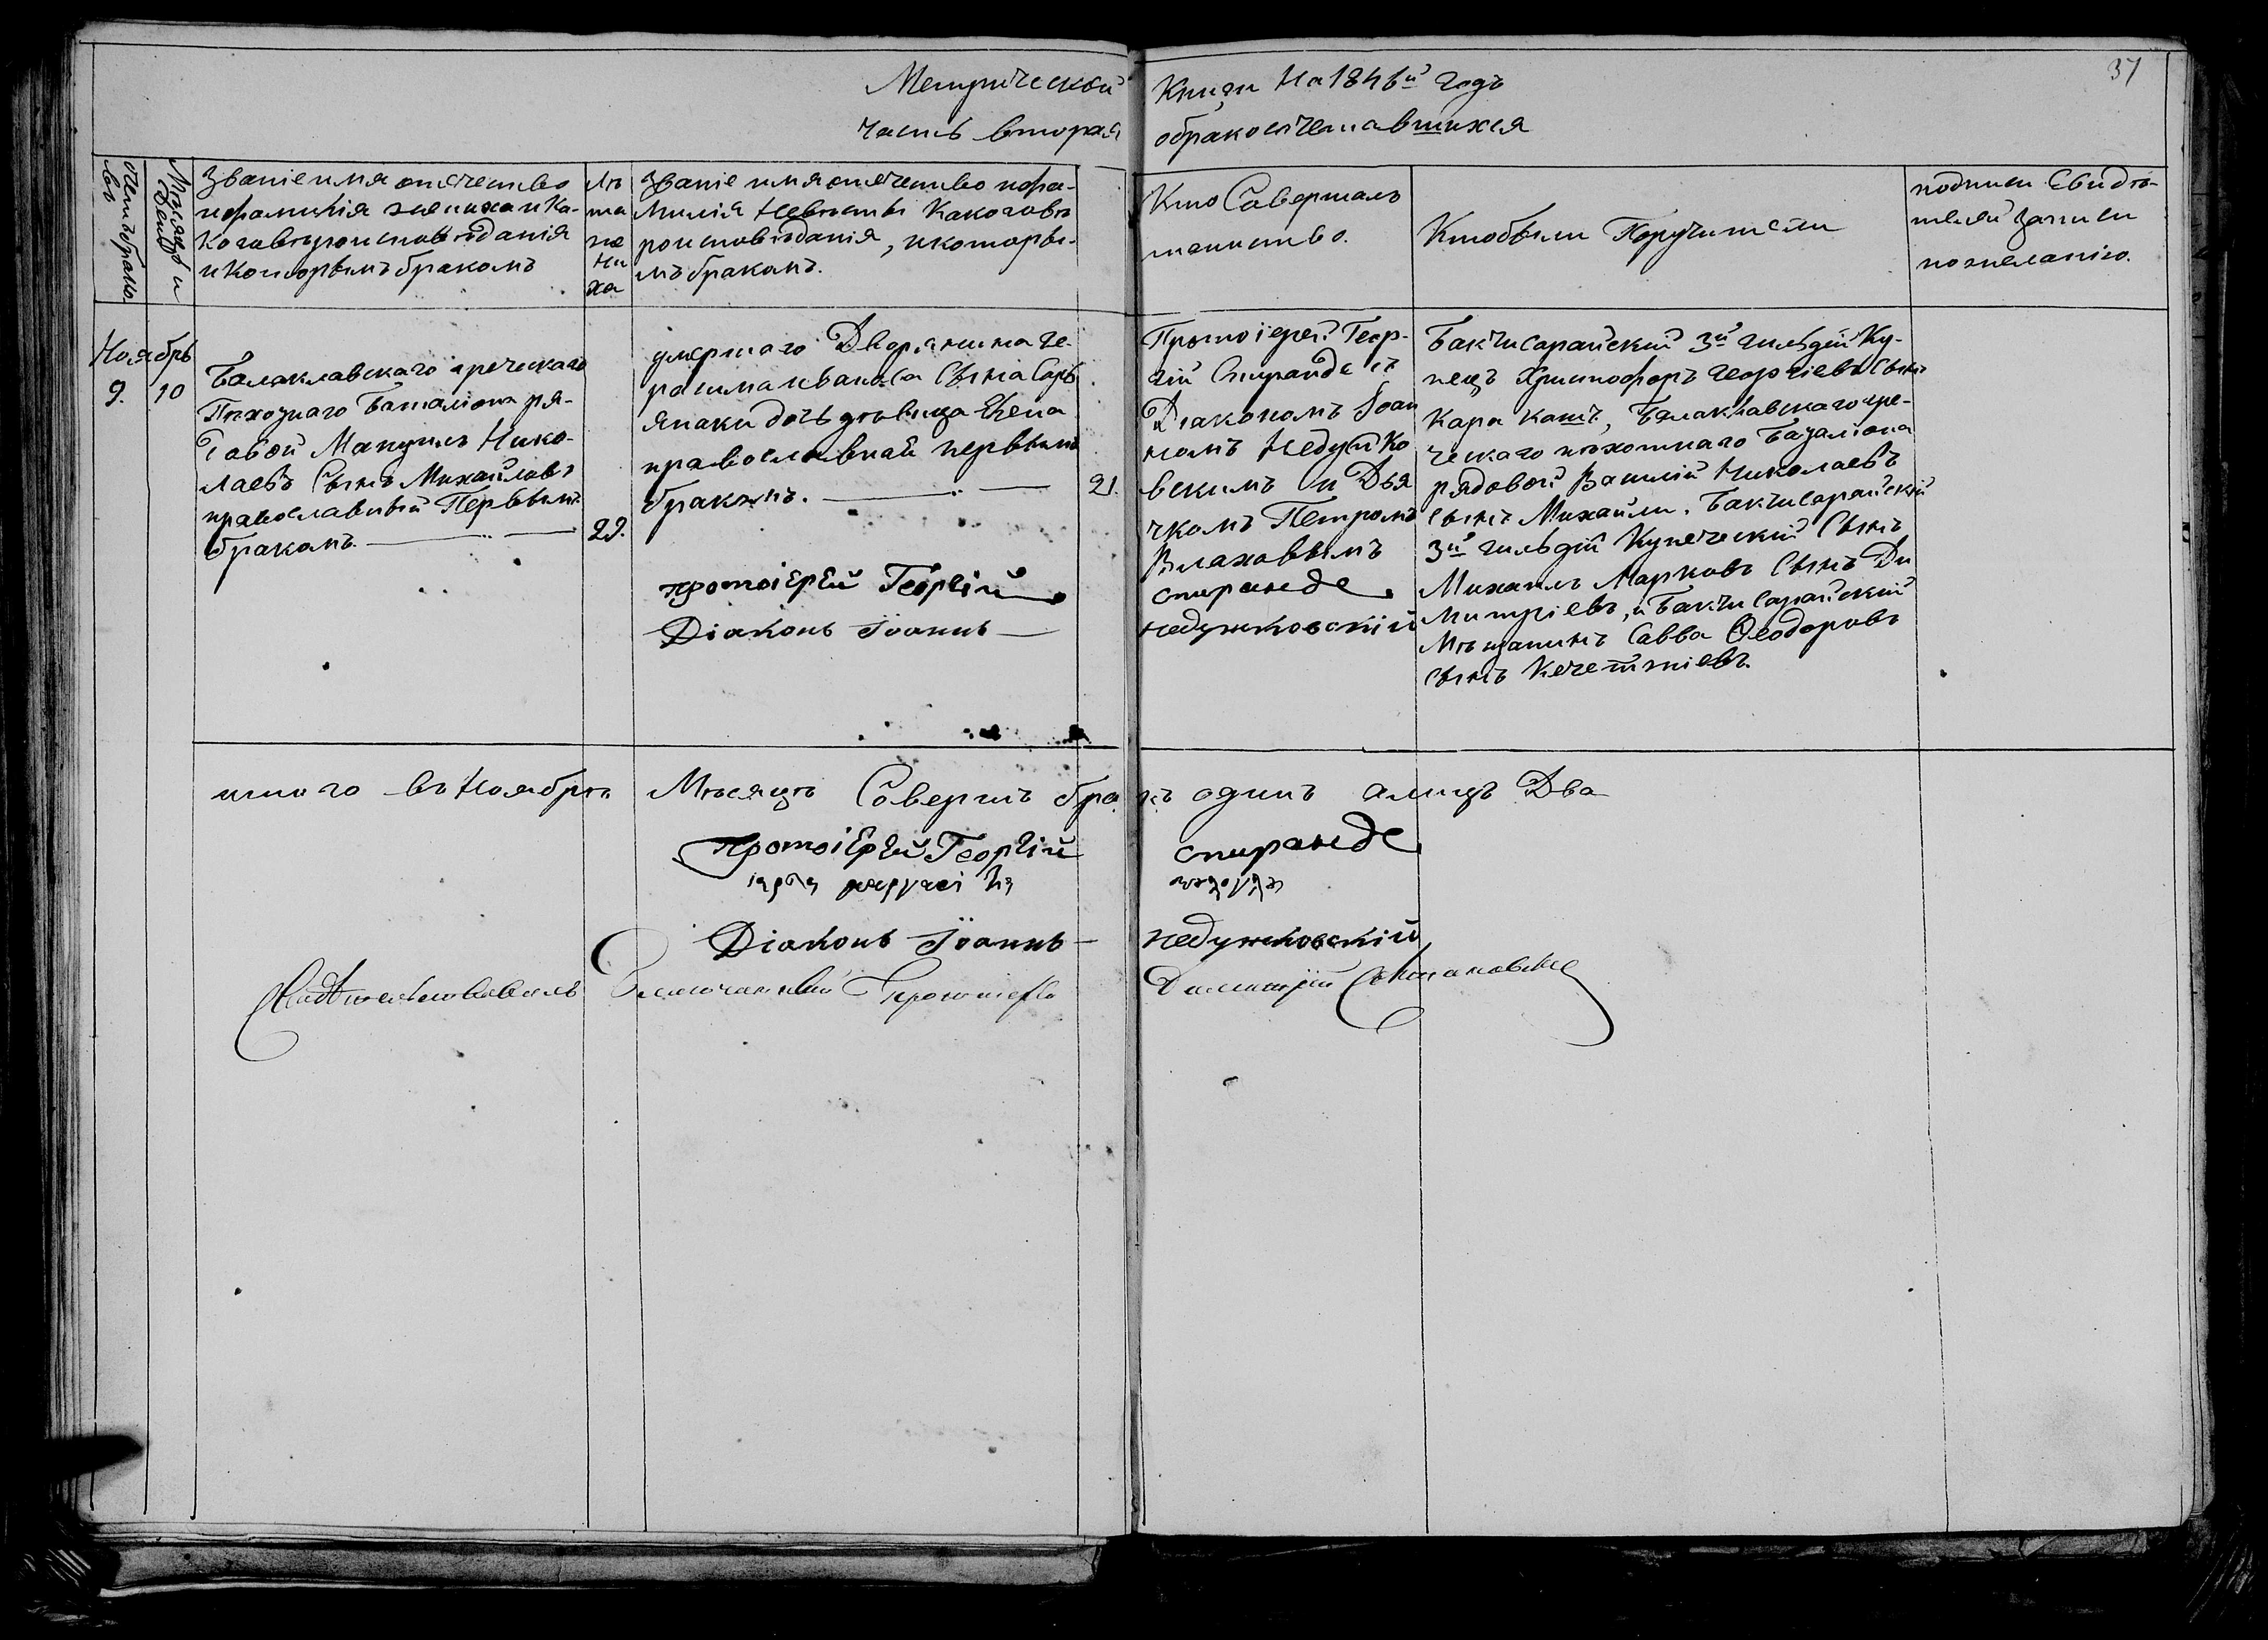 37
Метрической Книги на 1841й годъ
часть вторая обракосочетавшихся
Счетъ браковъ
Мѣсяцъ и День
Званіе имя отечество
ифамилія жениха и ка-
коговѣроисповѣданія
икоторымъ бракомъ
Лѣ
та
же
ни
ха
Званіе имя отечество ифа-
милія Невѣсты Какоговѣ
роисповѣданія, икоторы-
мъ бракомъ.
Кто Совершалъ
таинство.
Ктобыли Поручители
подписи Свидѣ-
телей записи
пожеланію.
Ноябрь
9. 10
Балаклавскаго греческаго
Пѣхотнаго Баталіона ря-
довой Мануилъ Нико-
лаевъ Сынъ Михайловъ
православный Первымъ
бракомъ.
29.
умершаго Дворянина Ге-
расима иванова Сына Сары
янаки дочь дѣвица Елена
православная первымъ
бракомъ.
21.
Протоіерей Геор-
гій Спиранде съ
Діакономъ Іоан
номъ Недуйко
вскимъ и Дья
чкомъ Петромъ
Влаховымъ
Бакчисарайскій 3й гильдіи Ку-
пецъ Христофоръ Георгіевъ Сынъ
Кара кашъ, Балаклавскаго гре-
ческаго пѣхотнаго Баталіона
рядовой Василій Николаевъ
сынъ Михайли, Бакчисарайскій
3й гильдіи Купеческій Сынъ
Михаилъ Марковъ Сынъ Ди
митріевъ, и Бакчисарайскій
Мѣщанинъ Савва Ѳеодоровъ
сынъ Кечетжіевъ.
протоіерей Георгій спиранде
Діаконъ Іоаннъ недужковскій
итого въ Ноябрѣ Мѣсяцѣ Соверш бракъ одинъ алицъ Два
протоіерей Георгій спиранде
Діаконъ Іоаннъ недужковскій